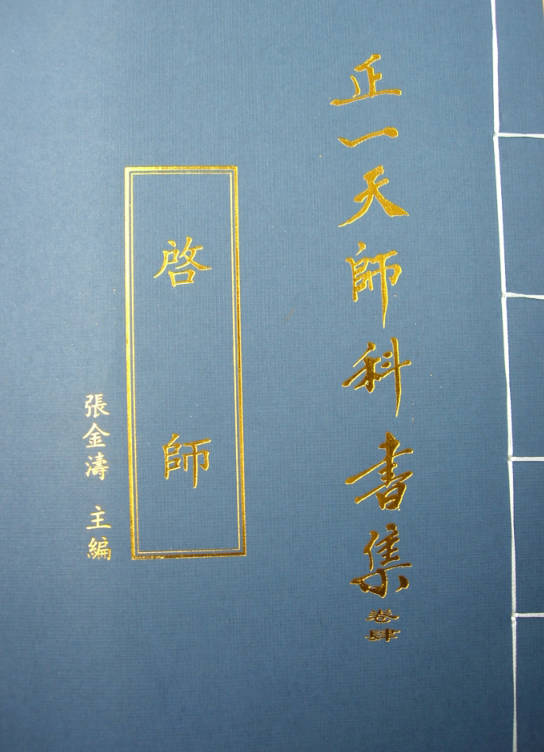 正一天師科書集 卷肆
啓師
張金濤 主編